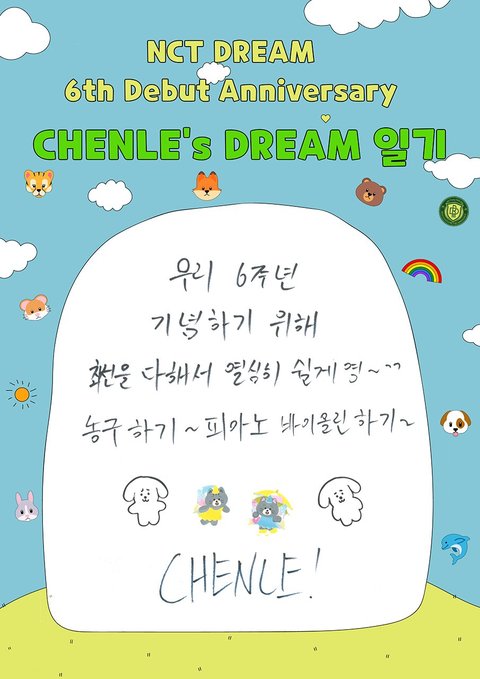 NCT DREAM
6th Debut Anniversary
CHENLE's DREAM 일기
우리 6주년
기념하기 위해
최선을 다해서 열심히 쉴게영~^^
농구하기~피아노 바이올린하기~
CHENLE!